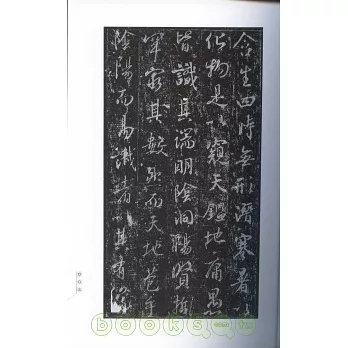 含生四時無形潛寒暑以
化物是以窺天鑑地庸愚
皆識其端明陰洞陽賢哲
罕窮其數然而天地苞乎
陰陽而易識者以其有像
books